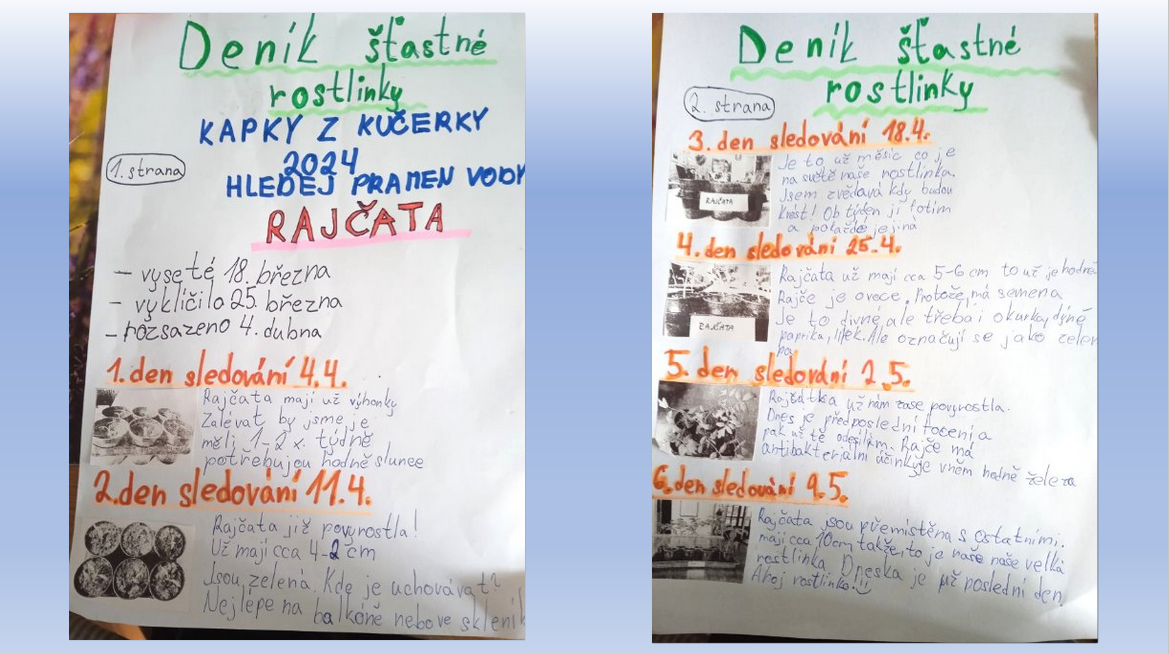 Deník šťastné
rostlinky
KAPKY Z KUČERKY
2024
1. strana
HLEDEJ PRAMEN VODY
RAJČATA
- vyseté 18. března
- vyklíčilo 25. března
- rozsazeno 4. dubna
1. den sledování 4.4.
Rajčata mají už výhonky
Zalévat by jsme je
měli 1-2x týdně
potřebujou hodně slunce
2. den sledování 11.4.
Rajčata již povyrostla!
Už mají cca 4-2 cm
Jsou zelená. Kde je uchovávat?
Nejlépe na balkóně nebo ve skleník
Deník šťastné
rostlinky
2. strana
3. den sledování 18.4.
Je to už měsíc co je
na světě naše rostlinka.
Jsem zvědavá kdy budou
kvést! Ob týden ji fotím
a pokaždé je jiná
RAJČATA
4. den sledování 25.4.
Rajčata už mají cca 5-6 cm to už je hodně
Rajče je ovoce. Protože má semena
Je to divné, ale třeba i okurka, dýně
paprika, lilek. Ale označují se jako zelen
na.
RAJČATA
5. den sledování 2.5.
Rajčátka už nám zase povyrostla.
Dnes je předposlední focení a
pak už tě odepíšem. Rajče má
antibakteriální účinky je v něm hodně železa
6. den sledování 9.5.
Rajčata jsou přemístěna s ostatními.
mají cca 10cm takže to je naše naše velká
rostlinka. Dneska je už poslední den,
Ahoj rostlinko!